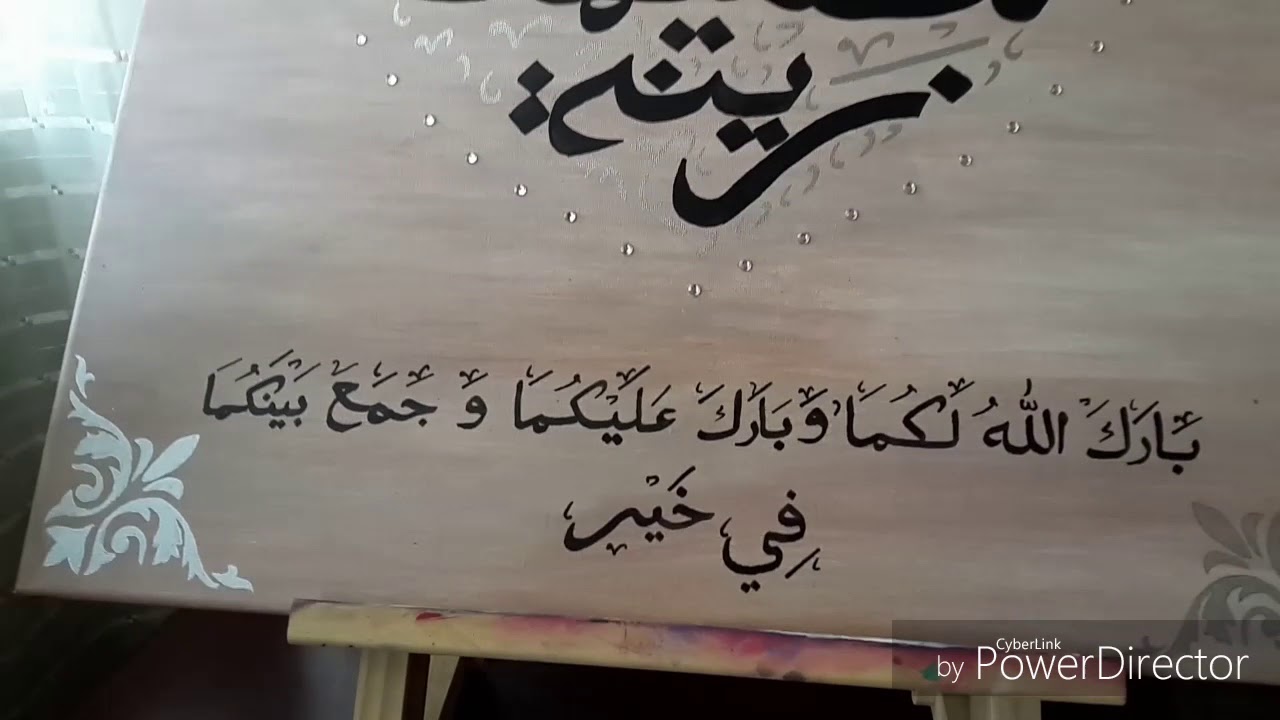 زينة
بَارَكَ اللّٰهُ لَكُمَا وَبَارَكَ عَلَيْكُمَا وَ جَمَعَ بَيْنَكُمَا
فِي خَيْر
CyberLink
by PowerDirector